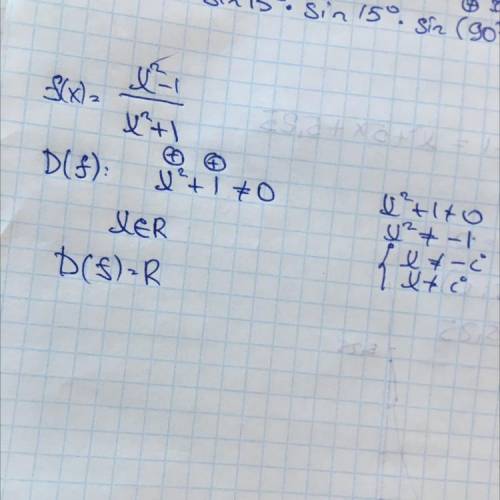 sin 15° · sin 15° · sin (90°
f(x) = x²-1 / x²+1
D(f): x² + 1 ≠ 0
⊕ ⊕
x∈R
D(f) = R
x²+1≠0
x² ≠ -1
{ x ≠ -i
x ≠ i